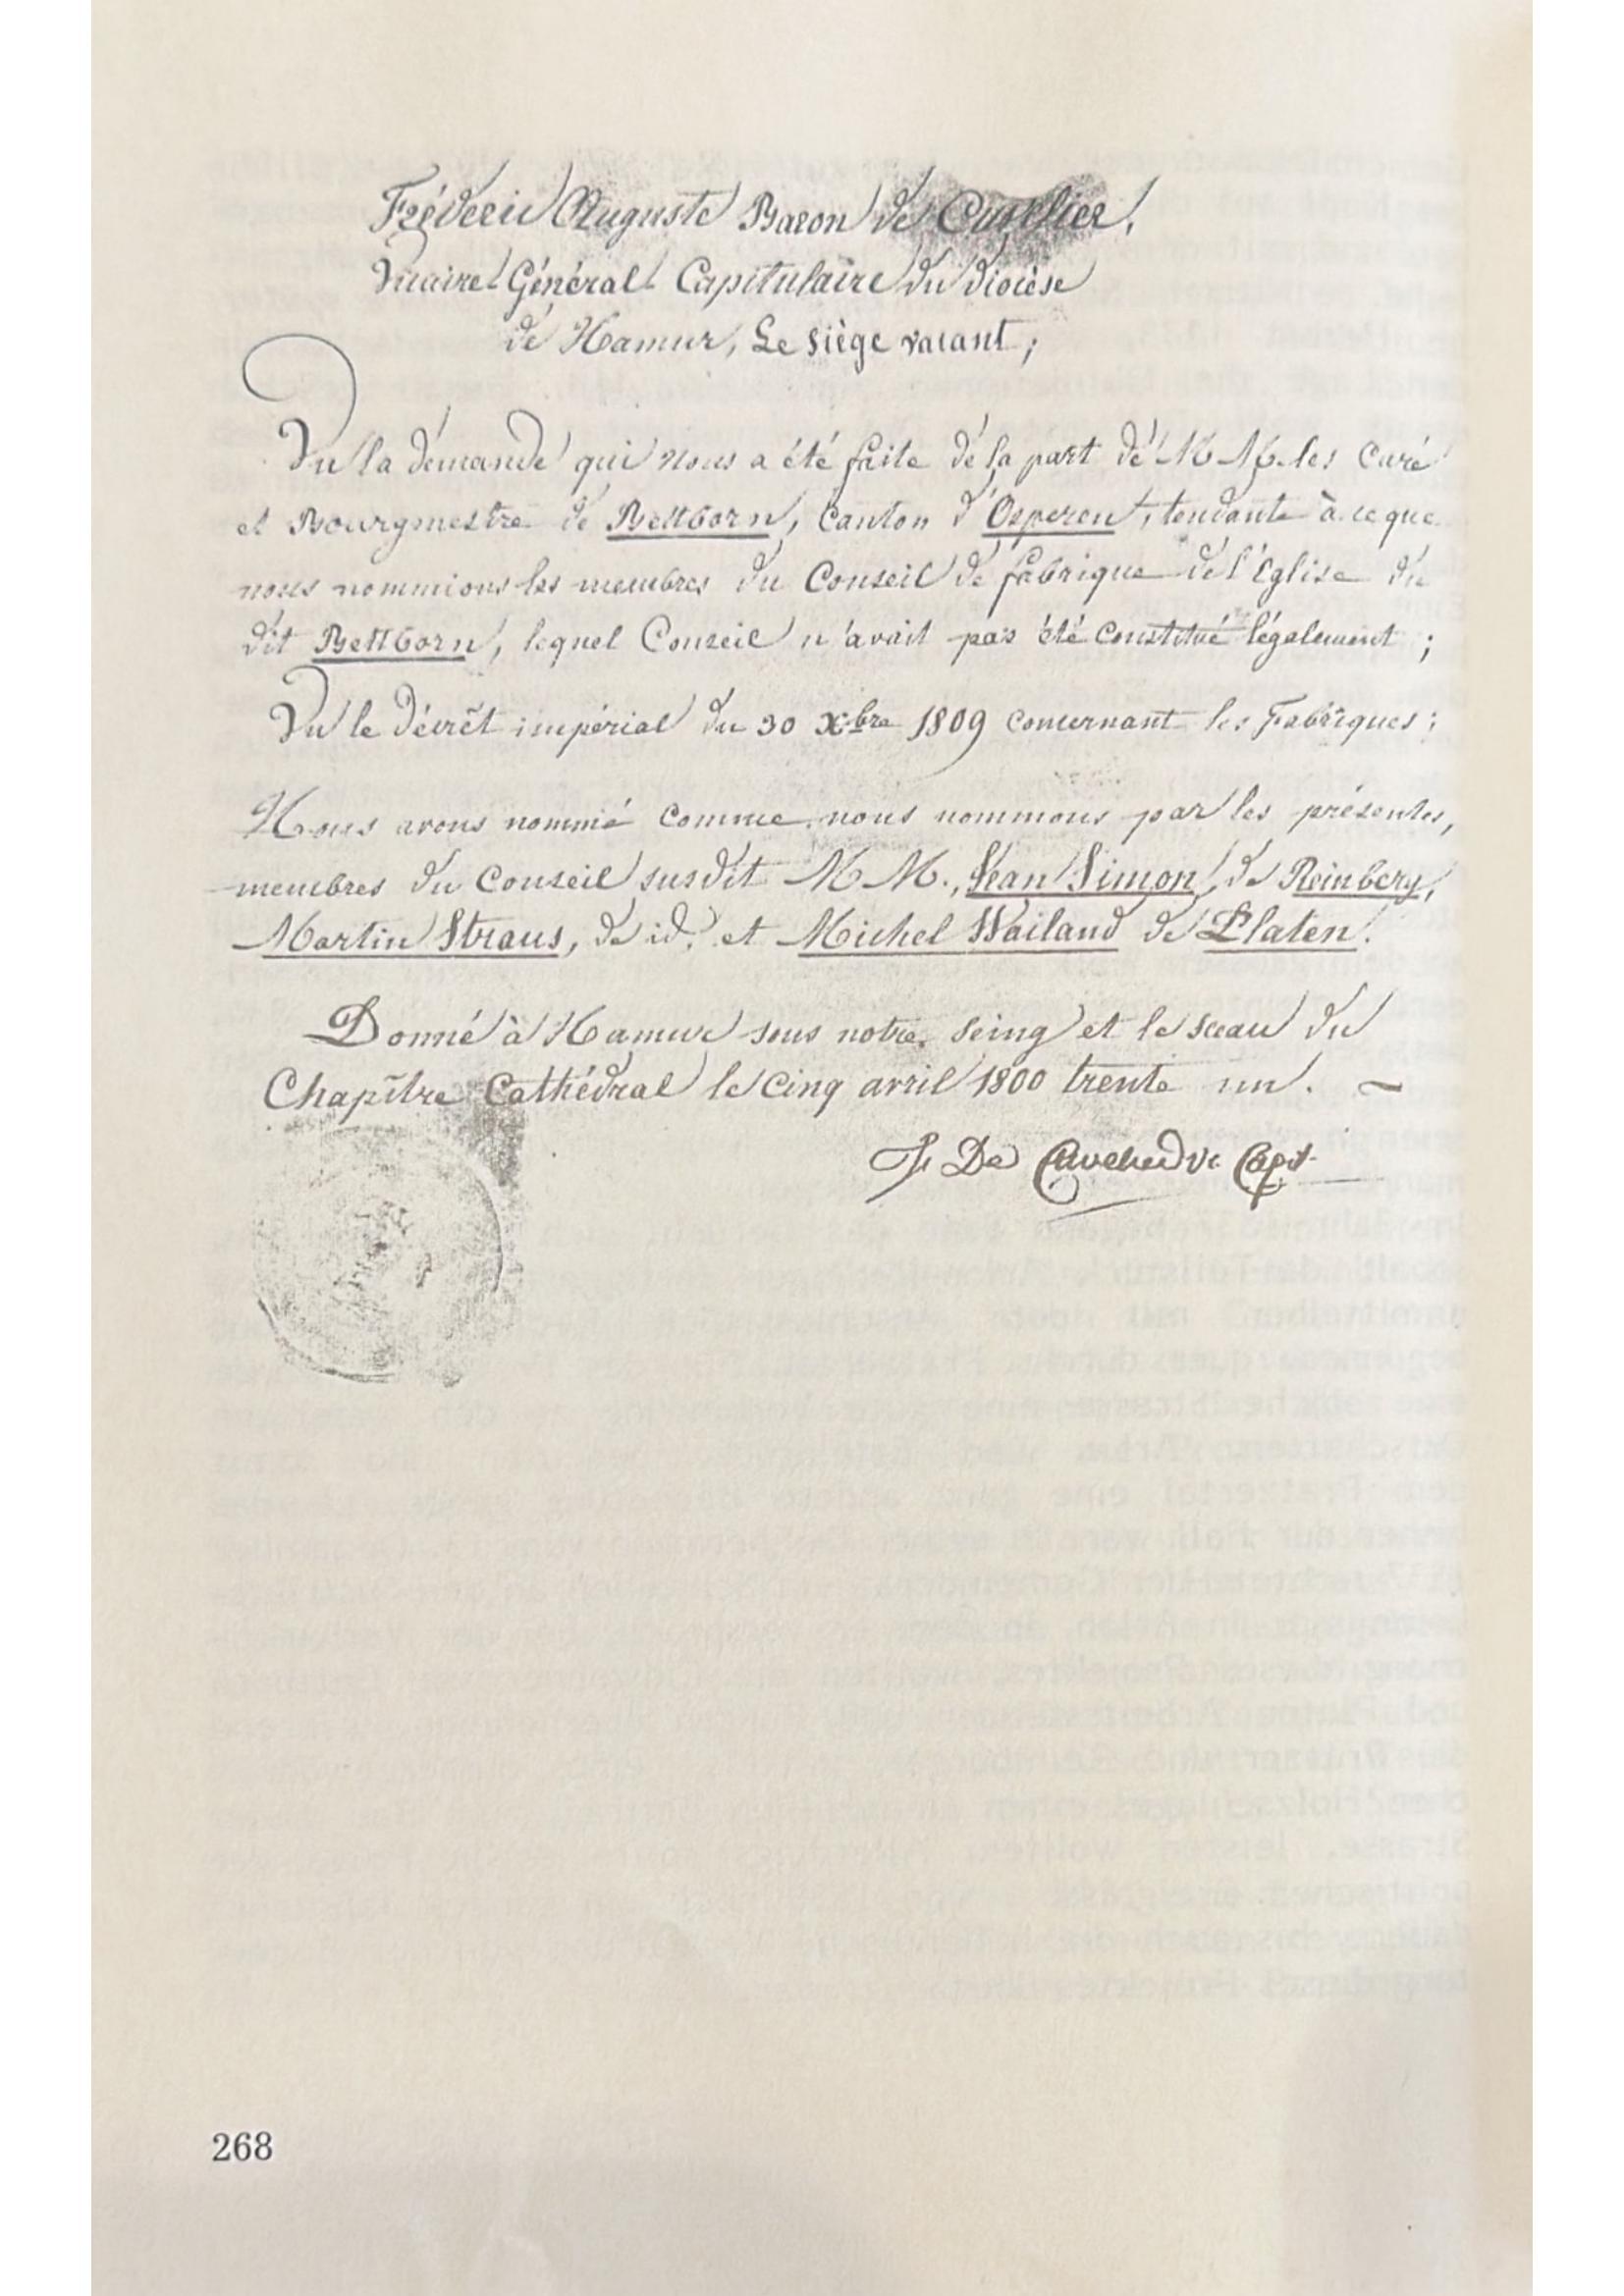 Fréderic Auguste Baron de Cuvelier,
Vicaire Général Capitulaire du diocèse
de Namur, Le siège vacant;
Vu la demande qui nous a été faite de la part de MM. les Curé
et Bourgmestre de Bettborn, Canton d'Osperen, tendante à ce que
nous nommions les membres du Conseil de fabrique de l'Eglise du
dit Bettborn, lequel Conseil n'avait pas été constitué légalement;
Vu le décrêt impérial du 30 Xbre 1809 concernant les Fabriques;
Nous avons nommé comme nous nommons par les présentes,
membres du Conseil susdit MM., Jean Simon, de Reinberg,
Martin Straus, de id. et Michel Wailand de Platen.
Donné à Namur sous notre seing et le sceau du
Chapître Cathédral le Cinq avril 1800 trente un. ~
De Cuvelier Vic Capit
268